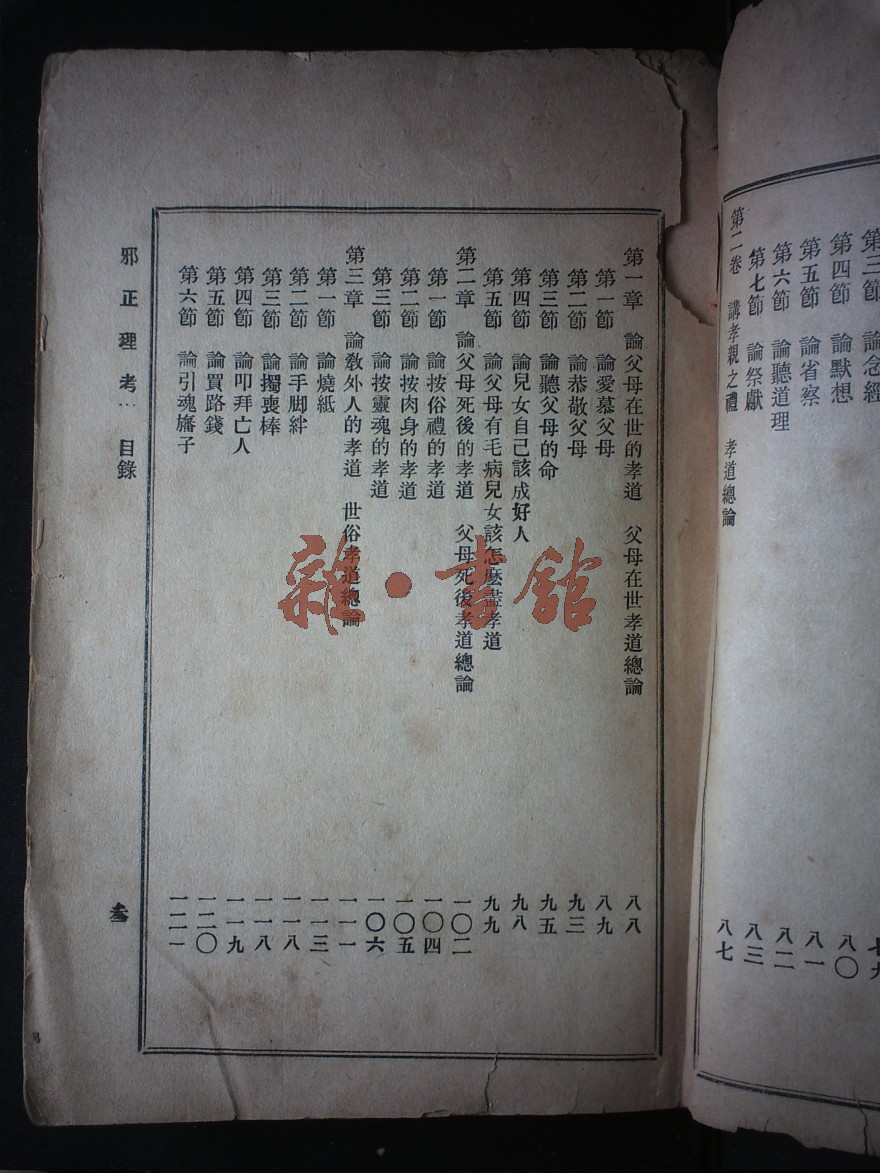 第三節 論念經 七九
第四節 論默想 八〇
第五節 論省察 八一
第六節 論聽道理 八二
第七節 論祭獻 八三
第二卷 講孝親之禮 孝道總論 八七
第一章 論父母在世的孝道 父母在世孝道總論 八八
第一節 論愛慕父母 八九
第二節 論恭敬父母 九三
第三節 論聽父母的命 九五
第四節 論兒女自己該成好人 九八
第五節 論父母有毛病兒女該怎麼盡孝道 九九
第二章 論父母死後的孝道 父母死後孝道總論 一〇二
第一節 論按俗禮的孝道 一〇四
第二節 論按肉身的孝道 一〇五
第三節 論按靈魂的孝道 一〇六
第三章 論教外人的孝道 世俗孝道總論 一一一
第一節 論燒紙 一一三
第二節 論手脚絆 一一八
第三節 論擉喪棒 一一八
第四節 論叩拜亡人 一一九
第五節 論買路錢 一二〇
第六節 論引魂旛子 一二一
邪正理考⋯ 目錄 叁
雜·書館